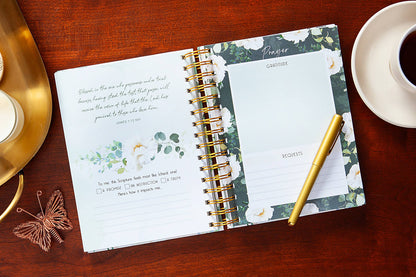 Blessed is the one who perseveres under trial
because, having stood the test, that person will
receive the crown of life that the Lord has
promised to those who love him.
JAMES 1:12 NIV
To me, this Scripture feels most like (check one):
A PROMISE AN INSTRUCTION A TRUTH
Here's how it impacts me...
Prayer
GRATITUDE
REQUESTS